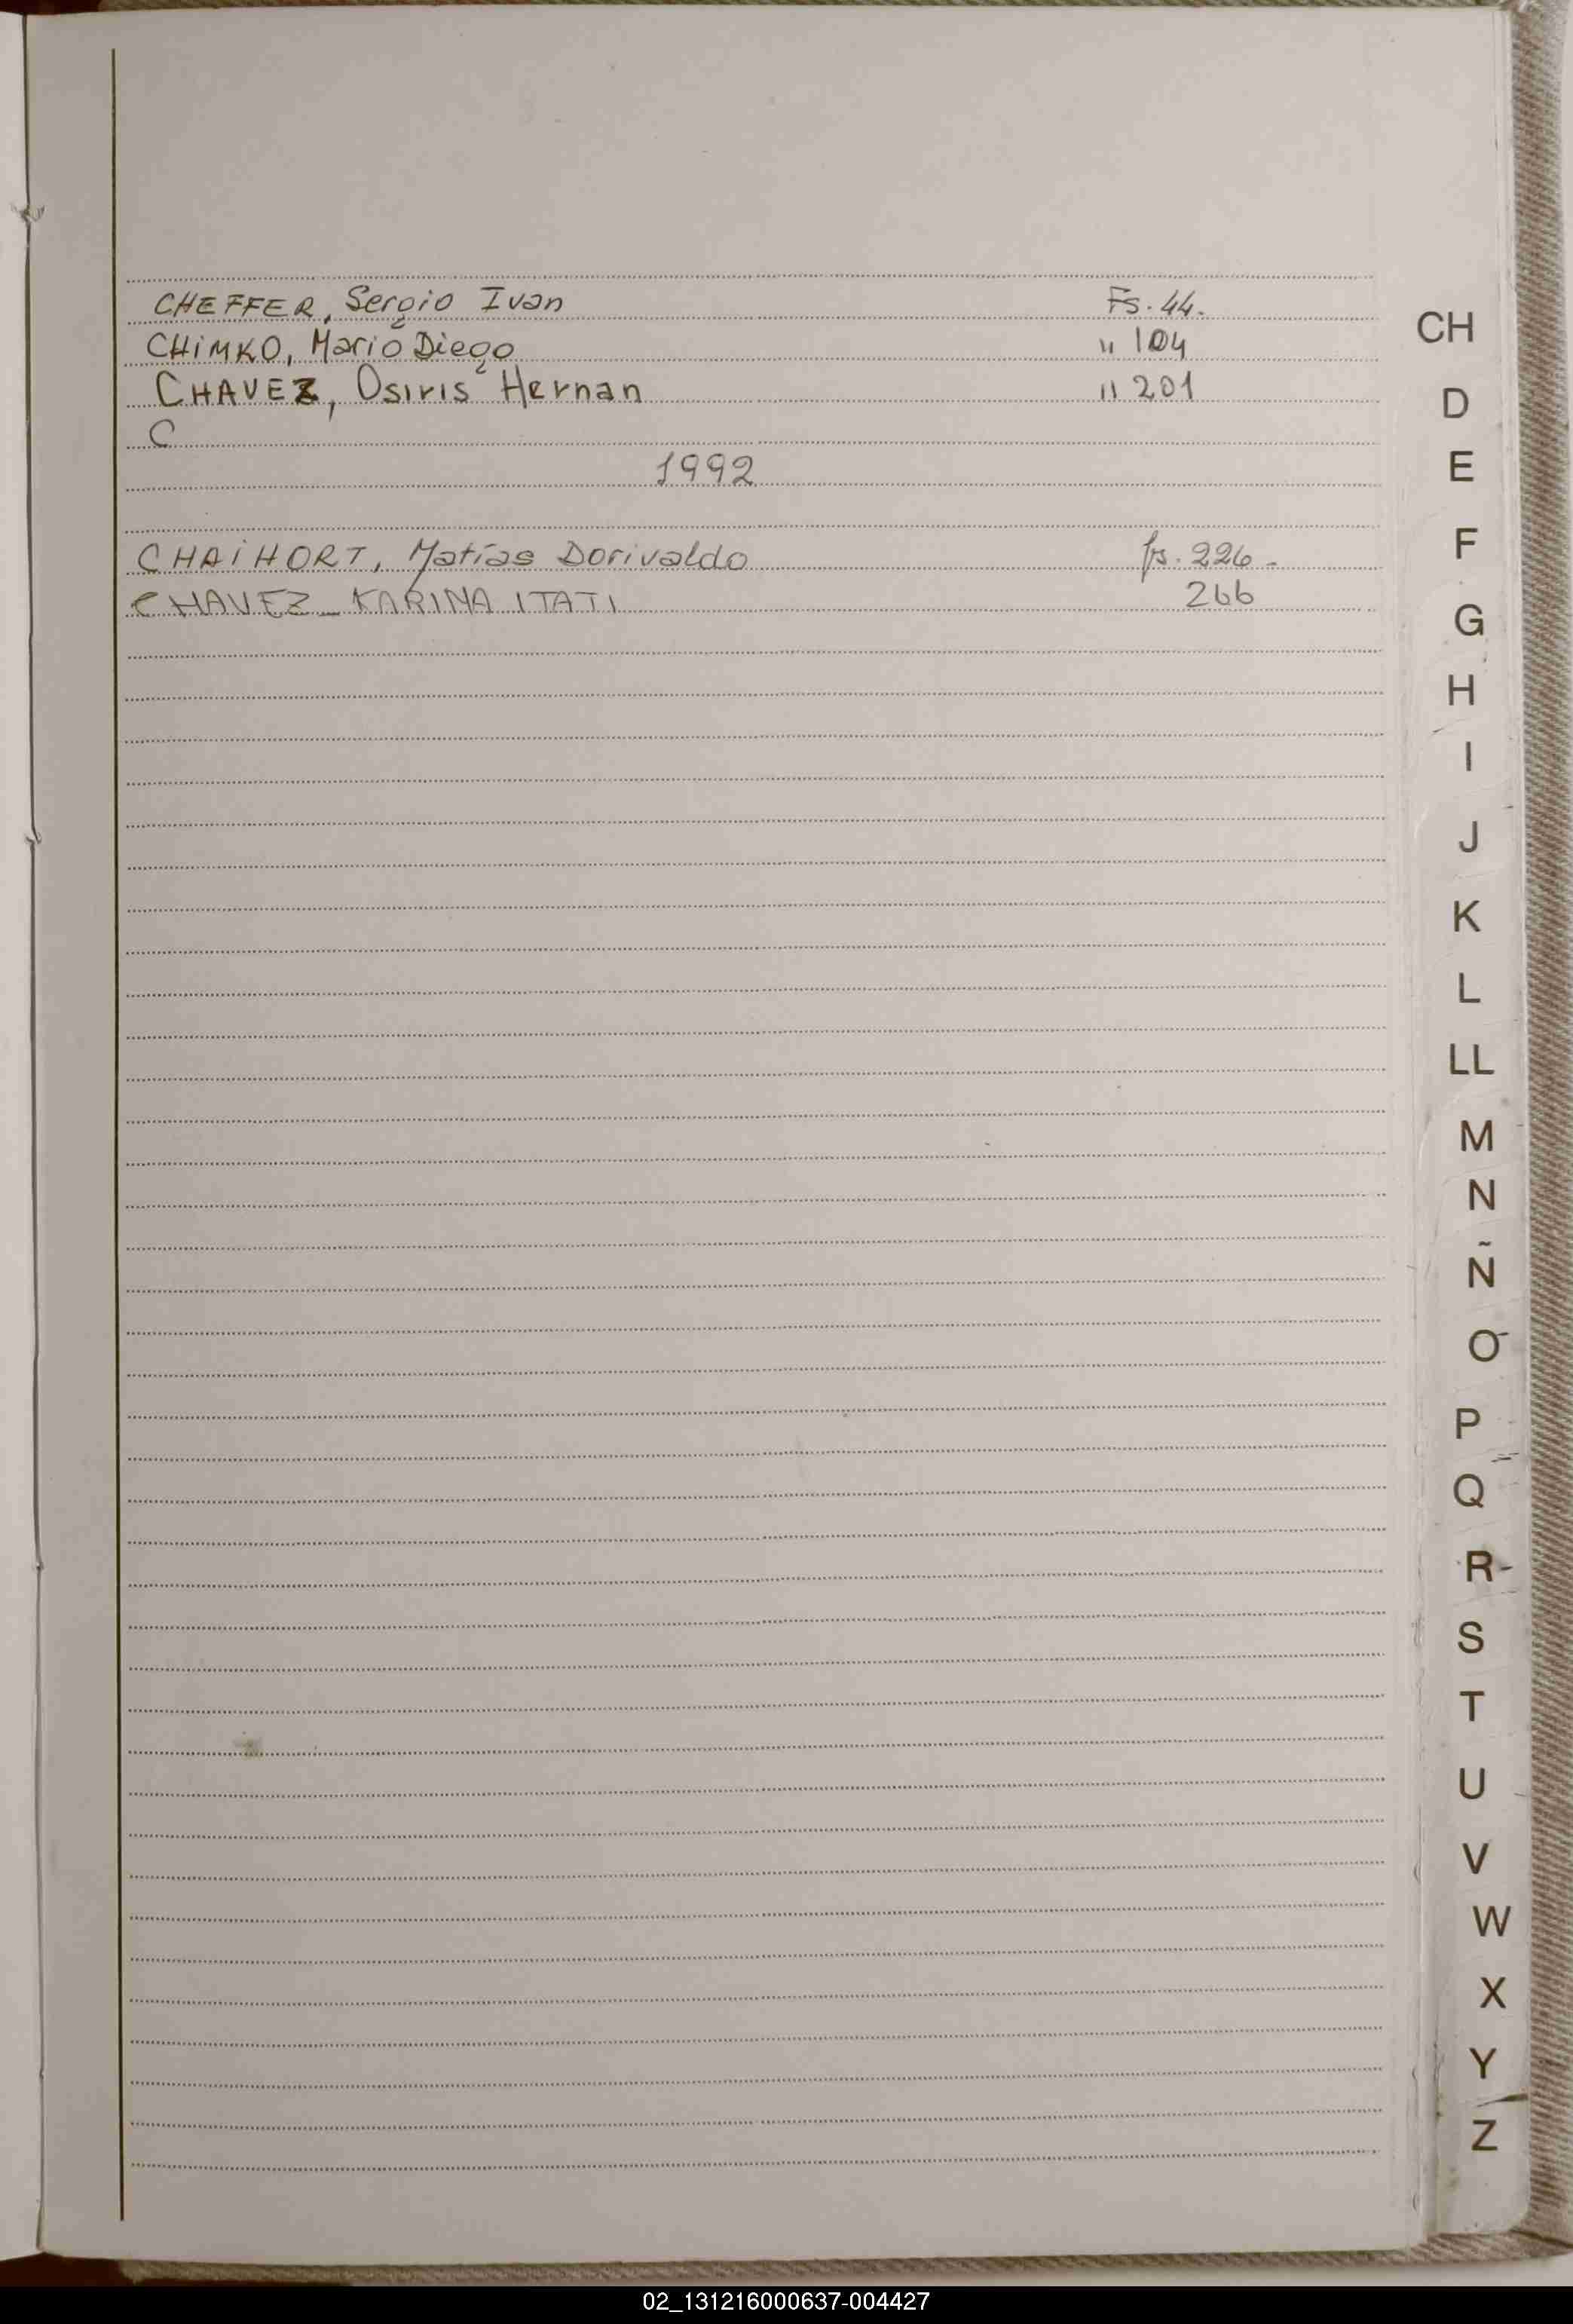 CHEFFER, Sergio Ivan Fs. 44.
CHiMKO, Mario Diego " 104
CHAVEZ, Osiris Hernan " 201
C
1992
CHAiHORT, Matías Dorivaldo fs. 226.
CHAVEZ - KARINA ITATI 266
CH
D
E
F
G
H
I
J
K
L
LL
M
N
Ñ
O
P
Q
R
S
T
U
V
W
X
Y
Z
02_131216000637-004427